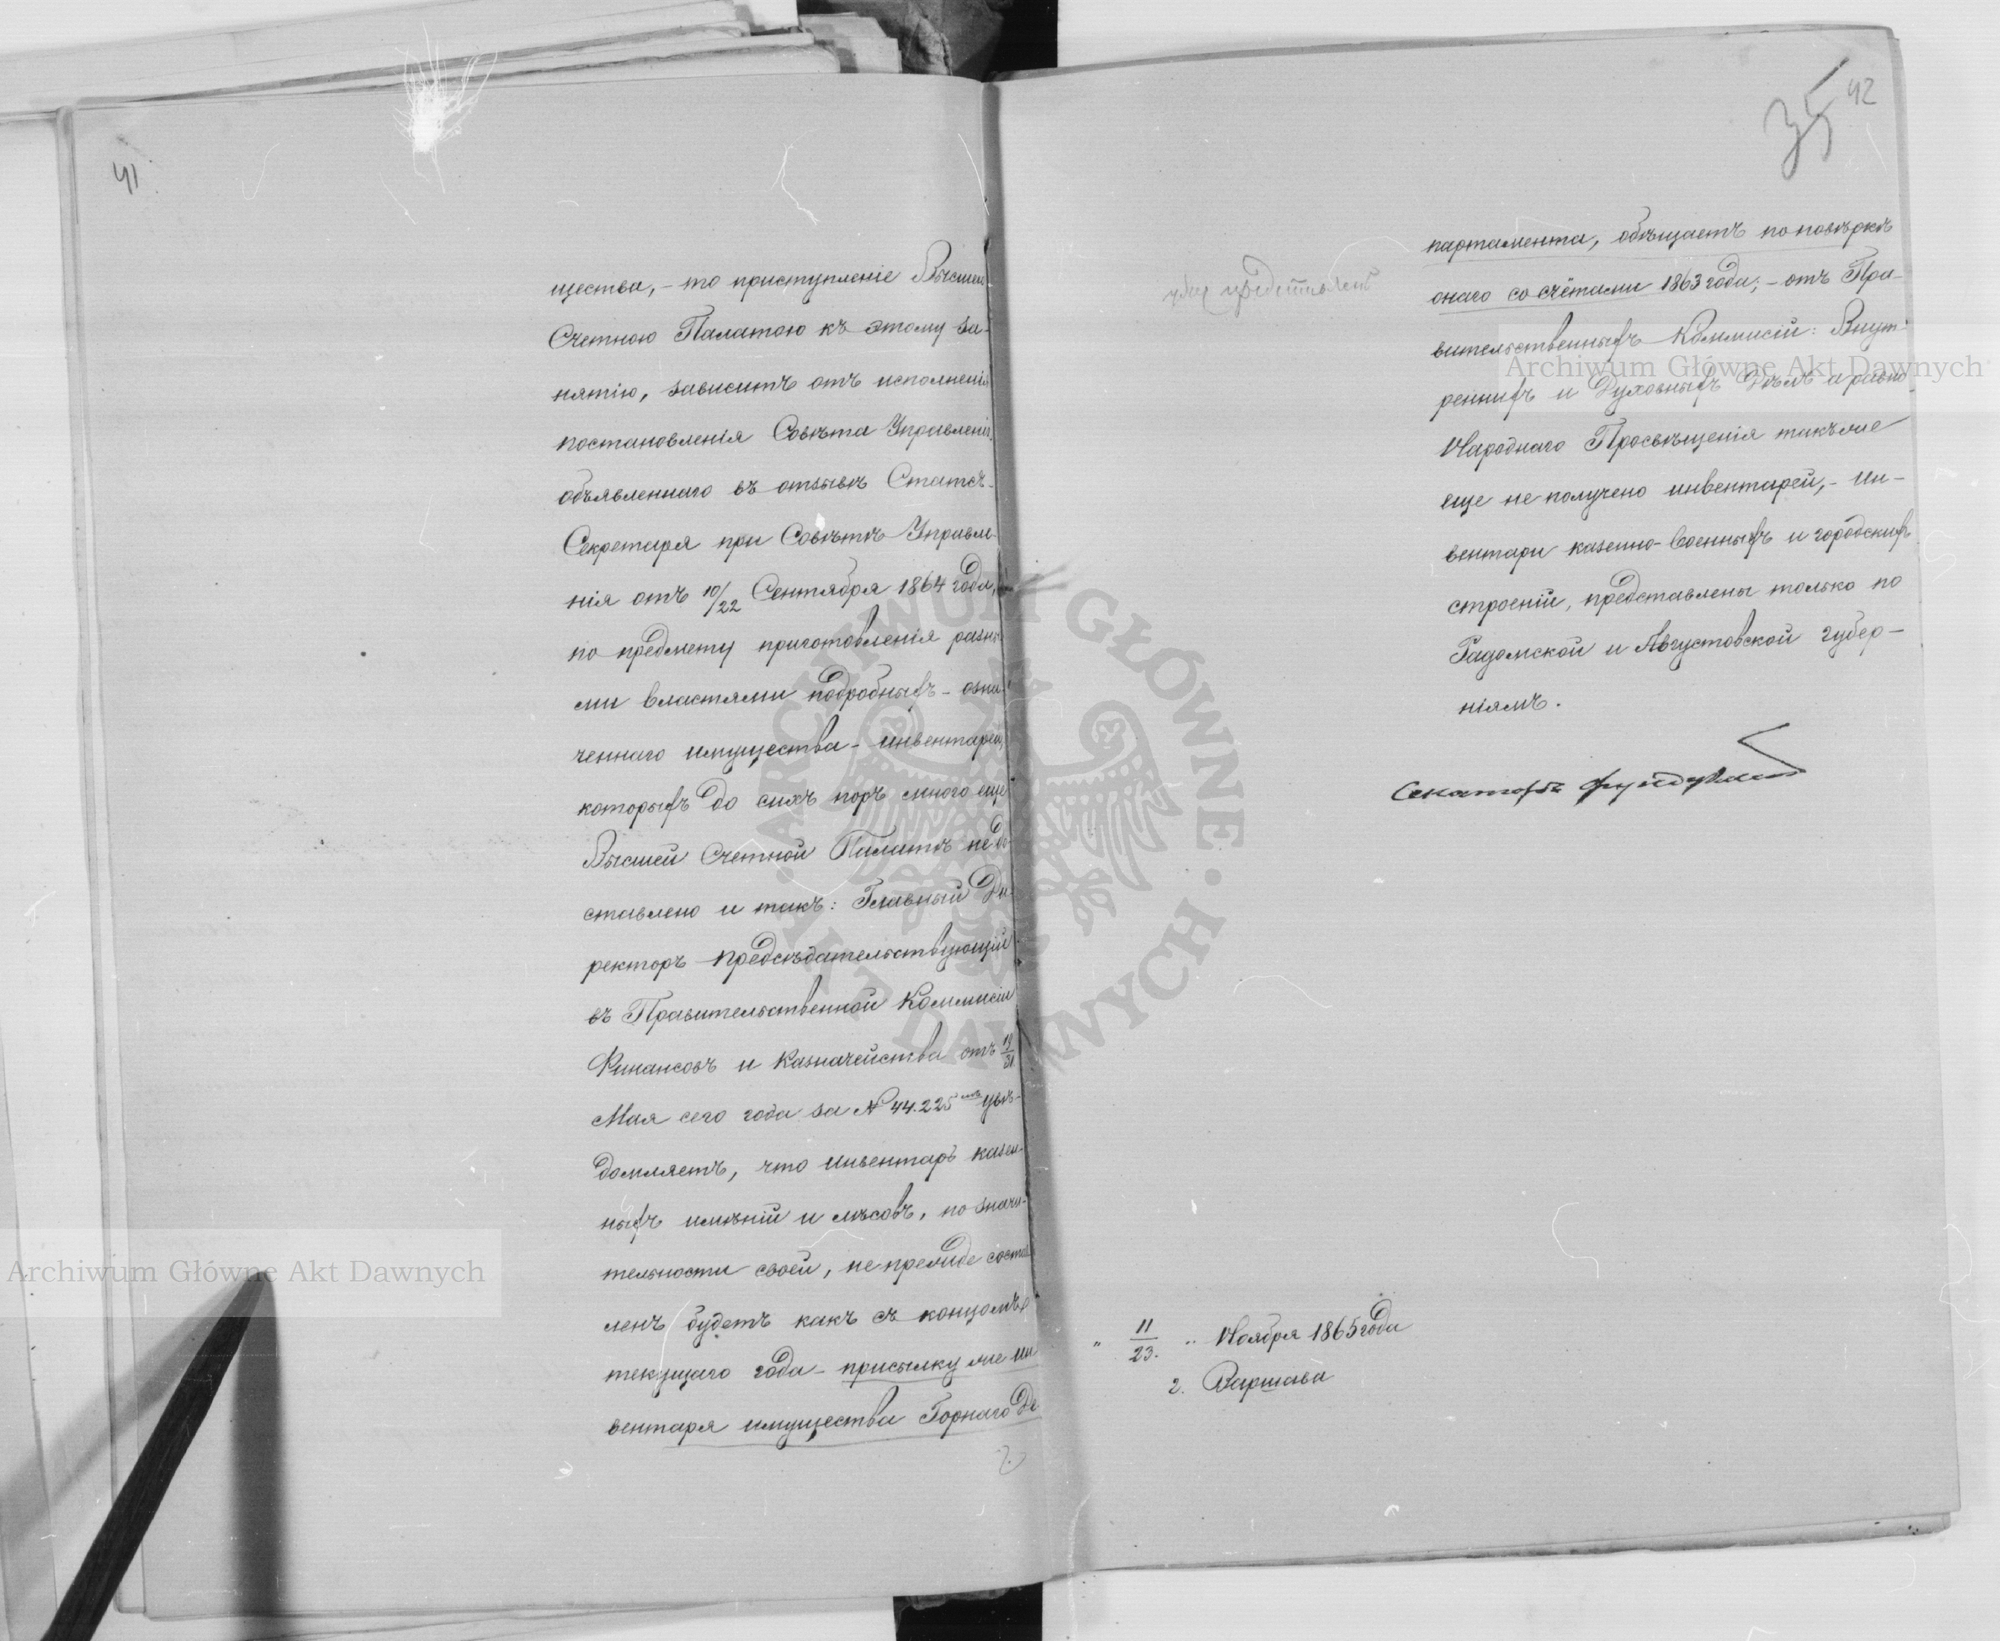 41
щества, - то приступленіе Высшею
Счетною Палатою къ этому за-
нятію, зависитъ отъ исполненія
постановленія Совѣта Управленія,
объявленнаго въ отзывѣ Статсъ-
Секретаря при Совѣтѣ Управле-
нія отъ 10/22 Сентября 1864 года,
по предмету приготовленія разны-
ми властями подробныхъ - озна-
ченнаго имущества - инвентарей,
которыхъ до сихъ поръ много еще
Высшей Счетной Палатѣ не до-
ставлено и такъ: Главный Ди-
ректоръ Предсѣдательствующій
въ Правительственной Коммисіи
Финансовъ и Казначейства отъ 19/31
Мая сего года за № 44.225 увѣ-
домляетъ, что инвентарь казен-
ныхъ имѣній и лѣсовъ, по значи-
тельности своей, не прежде состав-
ленъ будетъ какъ съ концомъ
текущаго года - присылку же ин-
вентаря имущества Горнаго Де-
35 42
партамента, обѣщаетъ по повѣркѣ
онаго со счётами 1863 года; - отъ Пра-
вительственныхъ Коммисій: Внут-
реннихъ и Духовныхъ Дѣлъ и равно
Народнаго Просвѣщенія также
еще не получено инвентарей, - ин-
вентари казенно-военныхъ и городскихъ
строеній, представлены только по
Радомской и Августовской губер-
ніямъ.
Сенаторъ Фундуклей
" 11/23. " Ноября 1865 года
г. Варшава
Archiwum Główne Akt Dawnych
Archiwum Główne Akt Dawnych
ARCHIWUM GŁÓWNE AKT DAWNYCH